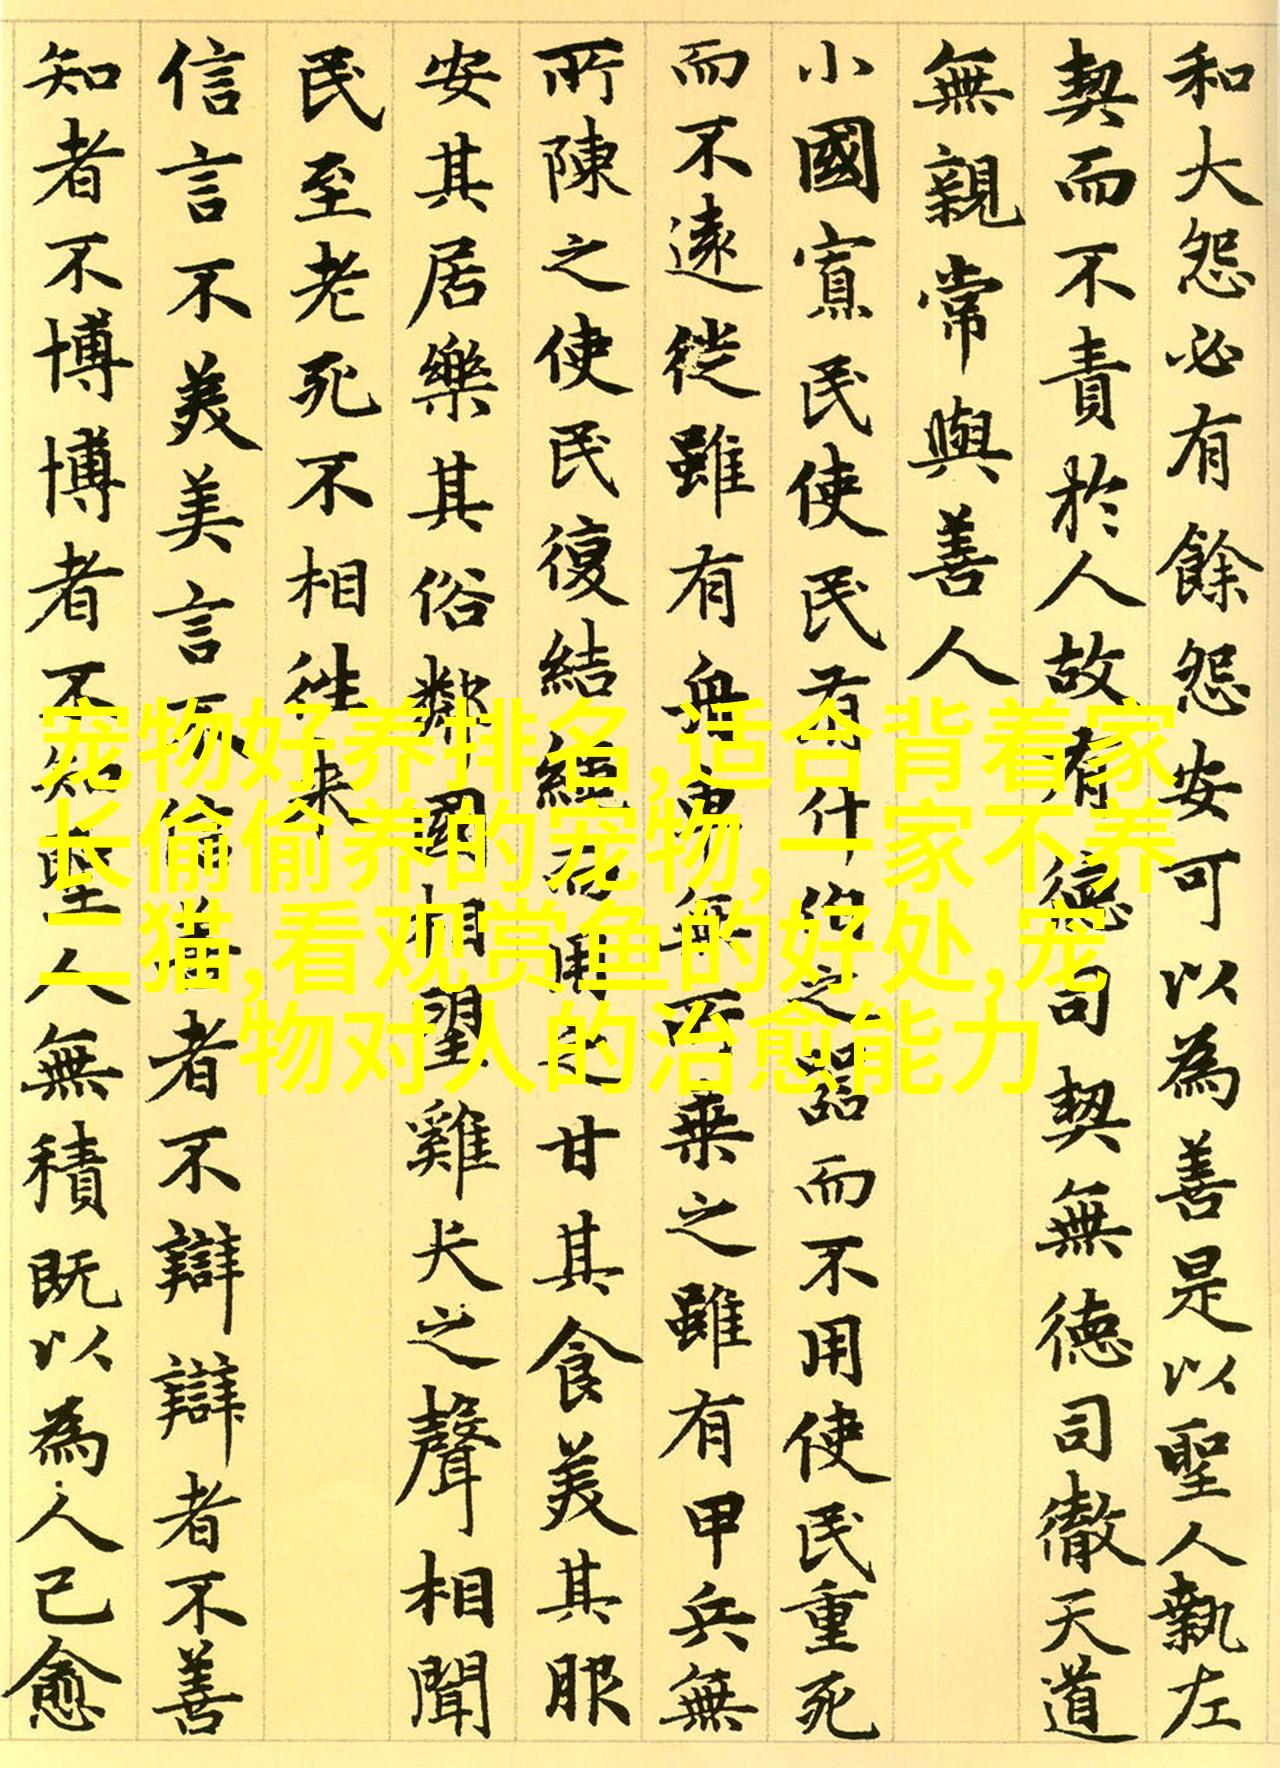 和大怨必有餘怨安可以為善是以聖人執左
契而不責於人故有德司契無德司徹天道
無親常與善人
小國寡民使民有什伯之器而不用使民重死
而不遠徙雖有舟輿無所乘之雖有甲兵無
所陳之使民復結繩而用之甘其食美其服
安其居樂其俗鄰國相望雞犬之聲相聞
民至老死不相往來
信言不美美言不信善者不辯辯者不善
知者不博博者不知聖人無積既以為人己愈
宠物好养排名,适合背着家
长偷偷养的宠物,一家不养
二猫,看观赏鱼的好处,宠
物对人的治愈能力